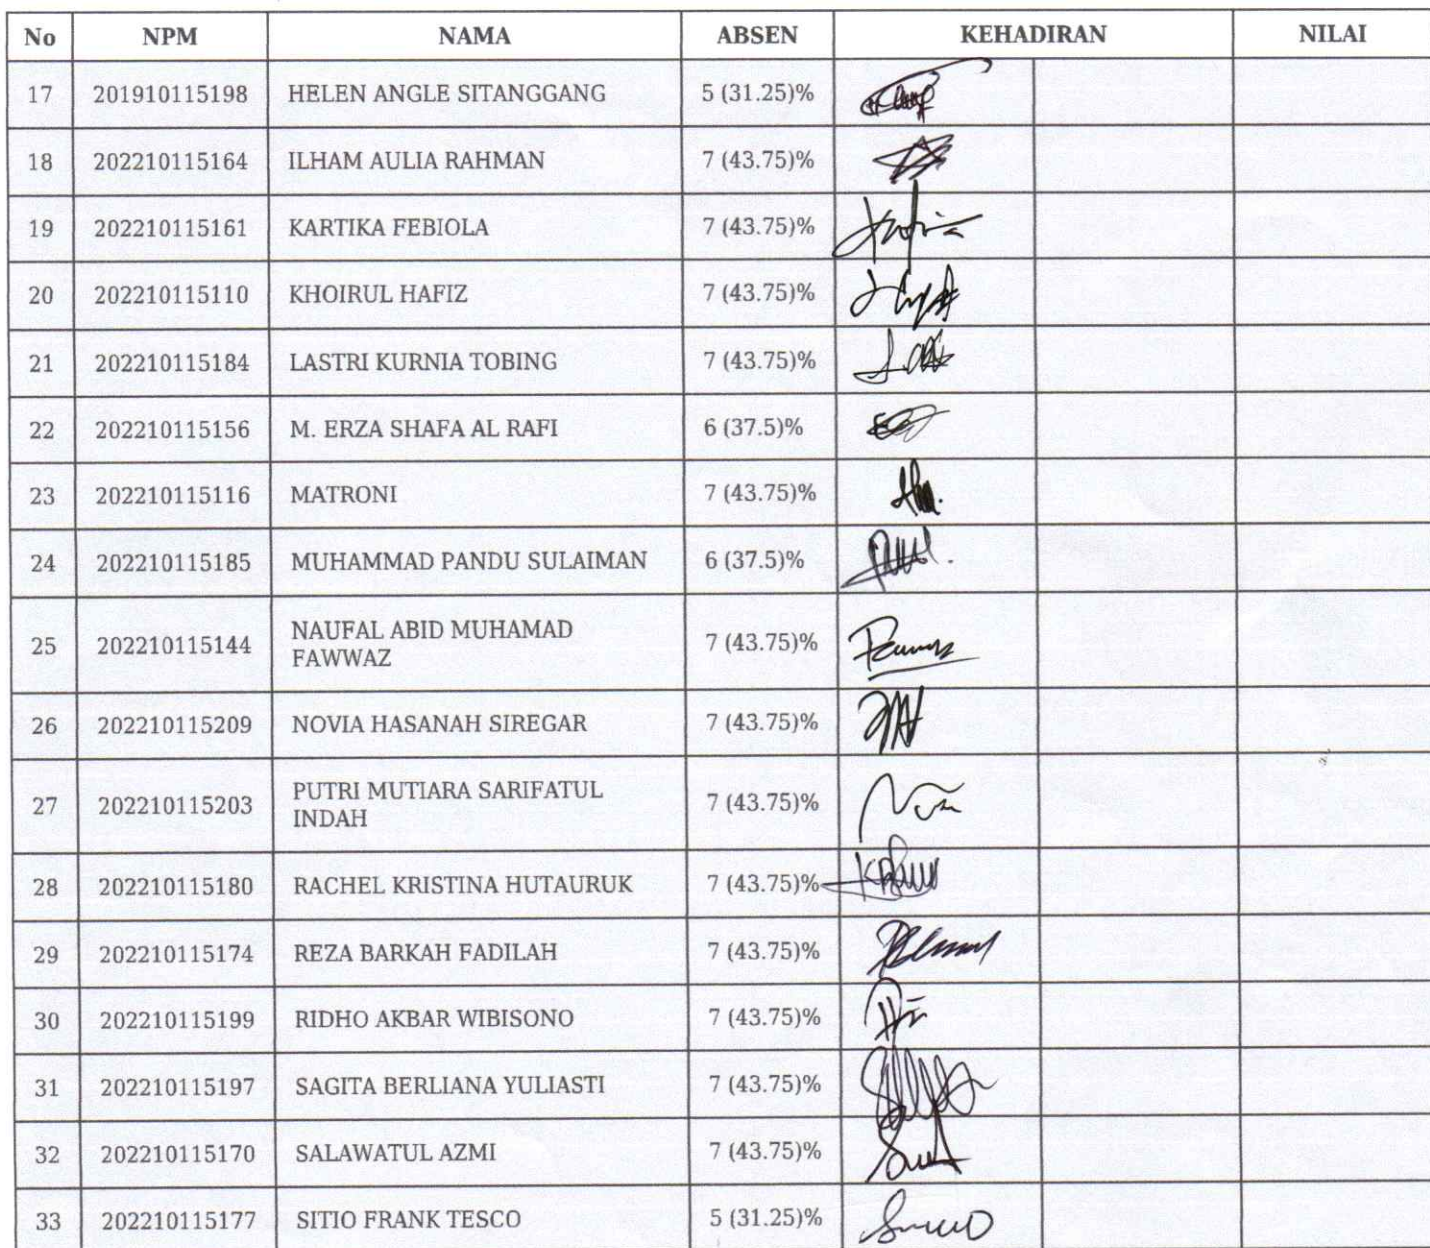 No NPM NAMA ABSEN KEHADIRAN NILAI
17 201910115198 HELEN ANGLE SITANGGANG 5 (31.25)%
18 202210115164 ILHAM AULIA RAHMAN 7 (43.75)%
19 202210115161 KARTIKA FEBIOLA 7 (43.75)%
20 202210115110 KHOIRUL HAFIZ 7 (43.75)%
21 202210115184 LASTRI KURNIA TOBING 7 (43.75)%
22 202210115156 M. ERZA SHAFA AL RAFI 6 (37.5)%
23 202210115116 MATRONI 7 (43.75)%
24 202210115185 MUHAMMAD PANDU SULAIMAN 6 (37.5)%
25 202210115144 NAUFAL ABID MUHAMAD 7 (43.75)%
FAWWAZ
26 202210115209 NOVIA HASANAH SIREGAR 7 (43.75)%
27 202210115203 PUTRI MUTIARA SARIFATUL 7 (43.75)%
INDAH
28 202210115180 RACHEL KRISTINA HUTAURUK 7 (43.75)%
29 202210115174 REZA BARKAH FADILAH 7 (43.75)%
30 202210115199 RIDHO AKBAR WIBISONO 7 (43.75)%
31 202210115197 SAGITA BERLIANA YULIASTI 7 (43.75)%
32 202210115170 SALAWATUL AZMI 7 (43.75)%
33 202210115177 SITIO FRANK TESCO 5 (31.25)%